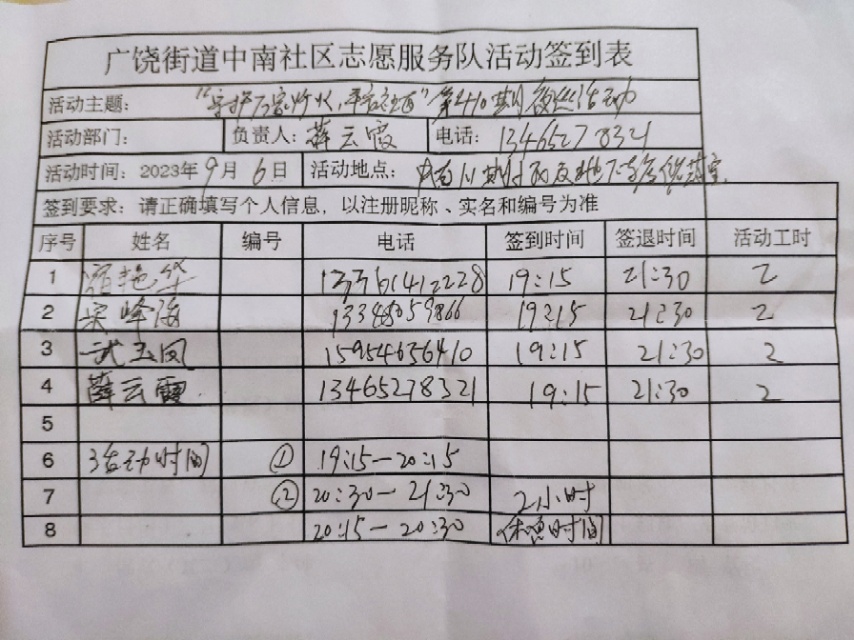 广饶街道中南社区志愿服务队活动签到表
活动主题：“守护万家灯火，平安社区”第410期夜巡活动
活动部门： 负责人：薛云霞 电话：13465278321
活动时间：2023年9月6日 活动地点：中南
签到要求：请正确填写个人信息，以注册昵称、实名和编号为准
序号 姓名 编号 电话 签到时间 签退时间 活动工时
1 艳华 13361412228 19:15 21:30 2
2 宋峰海 19:15 21:30 2
3 武玉凤 15954656410 19:15 21:30 2
4 薛云霞 13465278321 19:15 21:30 2
5
6 活动时间 ① 19:15—20:15
7 ② 20:30—21:30 2小时
8 20:15—20:30 休息时间